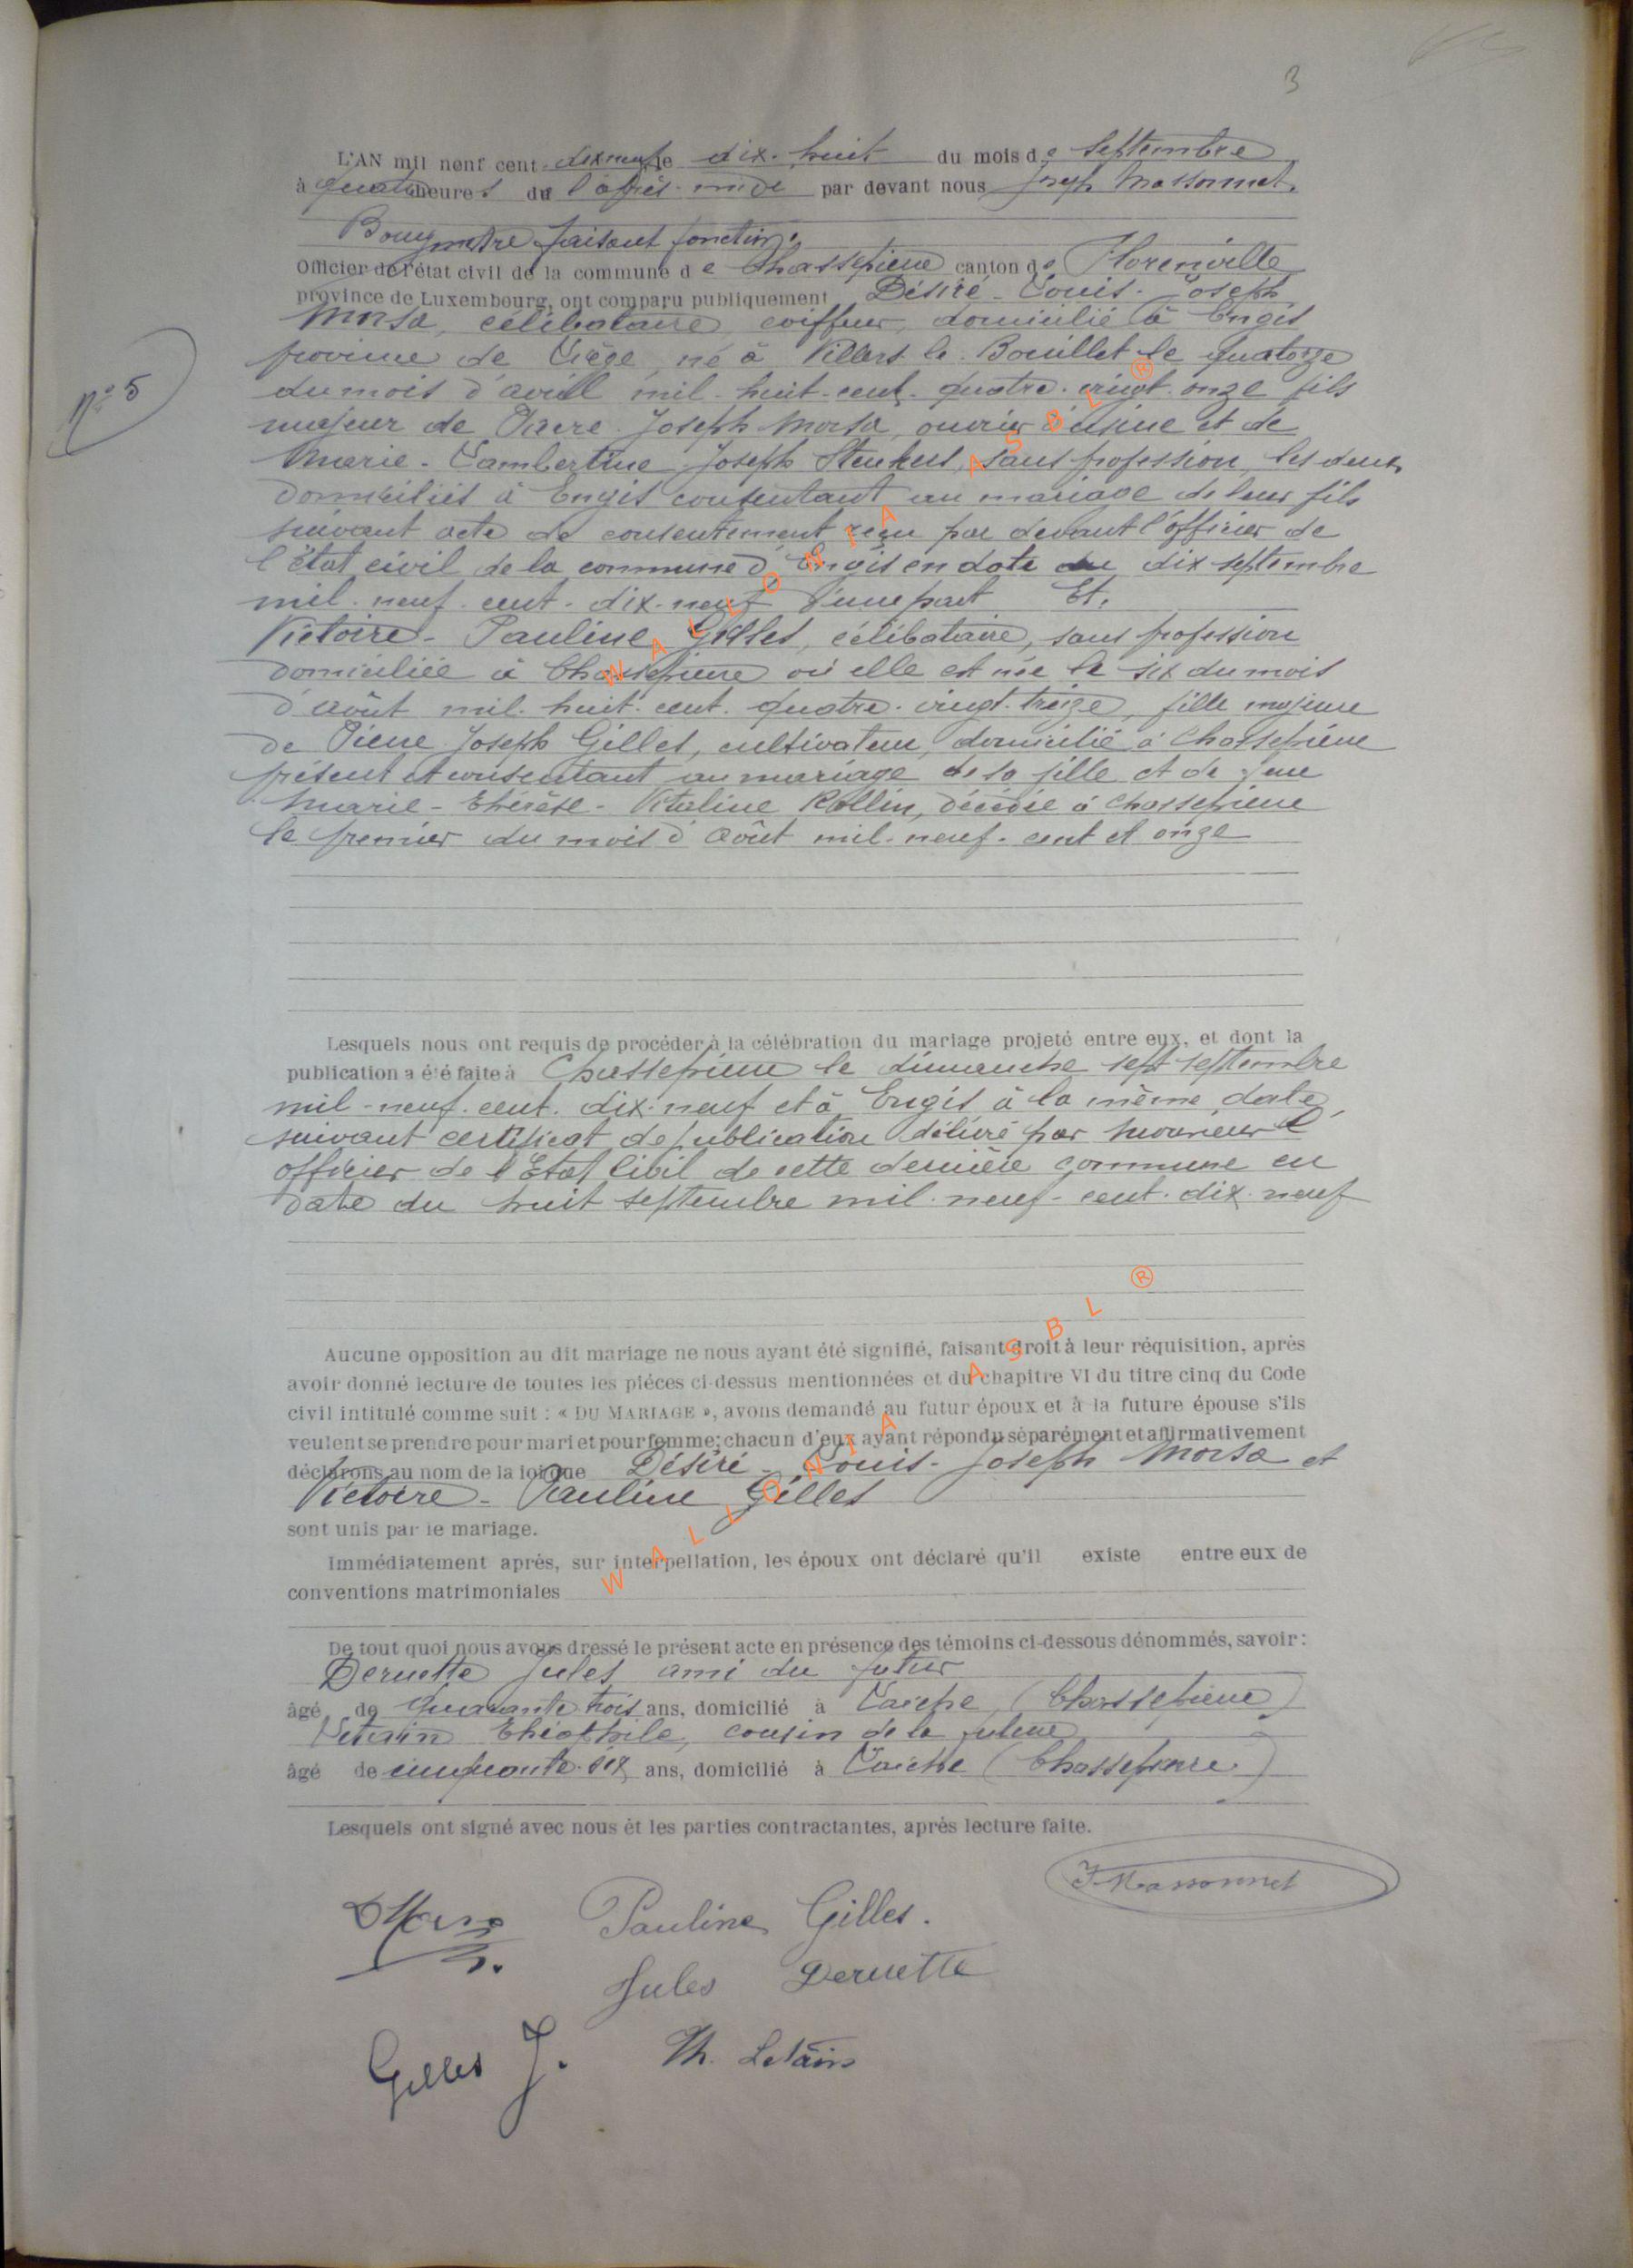 3
L'AN mil neuf cent dixneuf le dix-huit du mois de Septembre
à quatre heures de l'après-midi par devant nous Joseph Massonnet,
Bourgmestre faisant fonction,
Officier de l'état civil de la commune de Chassepierre canton de Florenville
province de Luxembourg, ont comparu publiquement Désiré-Louis-Joseph
Morsa, célibataire, coiffeur, domicilié à Engis
N° 5
province de Liège, né à Villers le Bouillet le quatorze
du mois d'avril mil-huit-cent-quatre-vingt-onze fils
majeur de Pierre-Joseph Morsa, ouvrier d'usine et de
Marie-Lambertine-Joseph, sans profession, les deux
domiciliés à Engis consentant au mariage de leur fils
suivant acte de consentement reçu par devant l'officier de
l'état civil de la commune d'Engis en date du dix septembre
mil-neuf-cent-dix-neuf d'une part Et,
Victoire-Pauline Gilles, célibataire, sans profession
domiciliée à Chassepierre où elle est née le six du mois
d'août mil-huit-cent-quatre-vingt-treize, fille majeure
de Pierre Joseph Gilles, cultivateur, domicilié à Chassepierre
présent et consentant au mariage de sa fille et de feue
Marie-Thérèse-Vitaline Rollin, décédée à Chassepierre
le premier du mois d'août mil-neuf-cent et onze
Lesquels nous ont requis de procéder à la célébration du mariage projeté entre eux, et dont la
publication a été faite à Chassepierre le dimanche sept septembre
mil-neuf-cent-dix-neuf et à Engis à la même date,
suivant certificat de publication délivré par monsieur l'
officier de l'Etat Civil de cette dernière commune en
date du huit septembre mil-neuf-cent-dix-neuf
Aucune opposition au dit mariage ne nous ayant été signifié, faisant droit à leur réquisition, après
avoir donné lecture de toutes les piéces ci-dessus mentionnées et du chapitre VI du titre cinq du Code
civil intitulé comme suit : « DU MARIAGE », avons demandé au futur époux et à la future épouse s'ils
veulent se prendre pour mari et pour femme; chacun d'eux ayant répondu séparément et affirmativement
déclarons au nom de la loi que Désiré-Louis-Joseph Morsa et
Victoire-Pauline Gilles
sont unis par le mariage.
Immédiatement après, sur interpellation, les époux ont déclaré qu'il existe entre eux de
conventions matrimoniales
De tout quoi nous avons dressé le présent acte en présence des témoins ci-dessous dénommés, savoir :
Deruette Jules ami du futur
âgé de quarante trois ans, domicilié à Laiche (Chassepierre)
Letain Théophile, cousin de la future
âgé de cinquante-six ans, domicilié à Laiche (Chassepierre)
Lesquels ont signé avec nous èt les parties contractantes, après lecture faite.
J. Massonnet
D Morsa Pauline Gilles.
Jules Deruette
Gilles J. Th. Letain
WALLONIA ASBL ®
WALLONIA ASBL ®